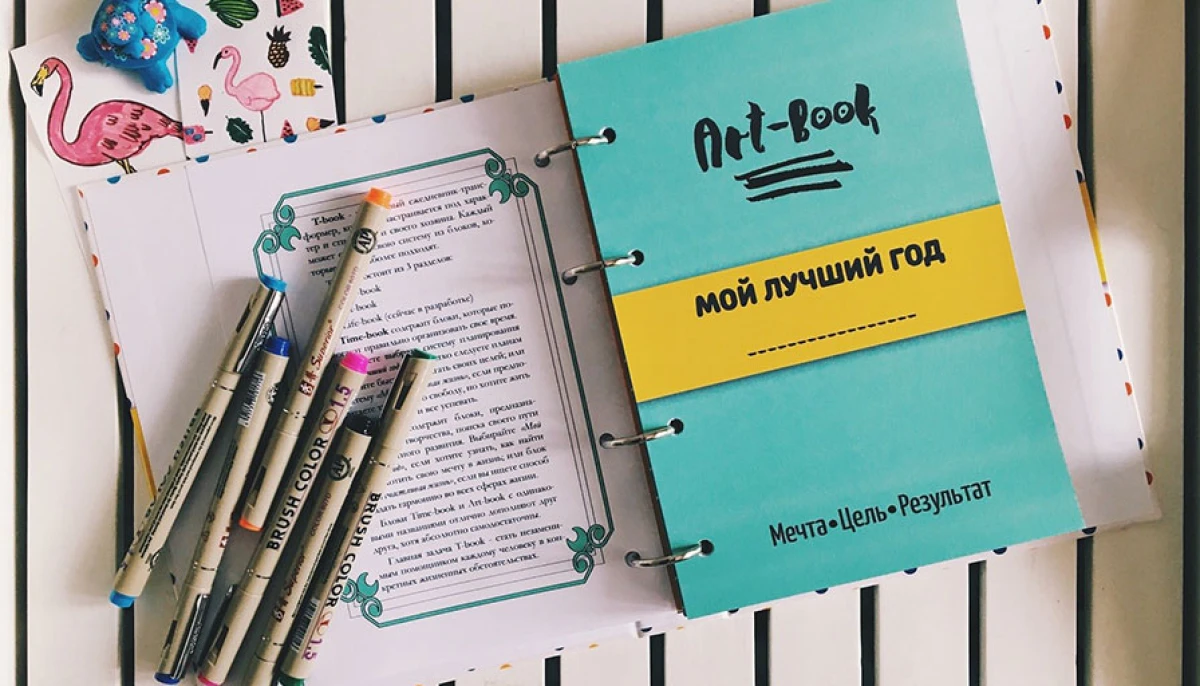 T-book - ежедневник-транс-
формер, под харак-
тер и своего хозяина. Каждый
может свою систему из блоков, ко-
торые подходят.
из 3 разделов:
book
book
Life-book (сейчас в разработке)
Time-book содержит блоки, которые по-
правильно организовать свое время.
систему планирования
следуете планам
своих целей; или
жизнь», если предпо-
свободу, но хотите жить
и все успевать.
содержит блоки, предназна-
творчества, поиска своего пути
развития. Выбирайте «Мой
если хотите узнать, как найти
свою мечту в жизнь; или блок
жизнь», если вы ищете способ
гармонию во всех сферах жизни.
Блоки Time-book и Art-book с одинако-
выми названиями отлично дополняют друг
друга, хотя абсолютно самодостаточны.
Главная задача T-book - стать незамени-
мым помощником каждому человеку в кон-
кретных жизненных обстоятельствах.
Superior
BRUSH COLOR 1.5
Superior
BRUSH COLOR 1.5
Art-Book
МОЙ ЛУЧШИЙ ГОД
Мечта•Цель•Результат